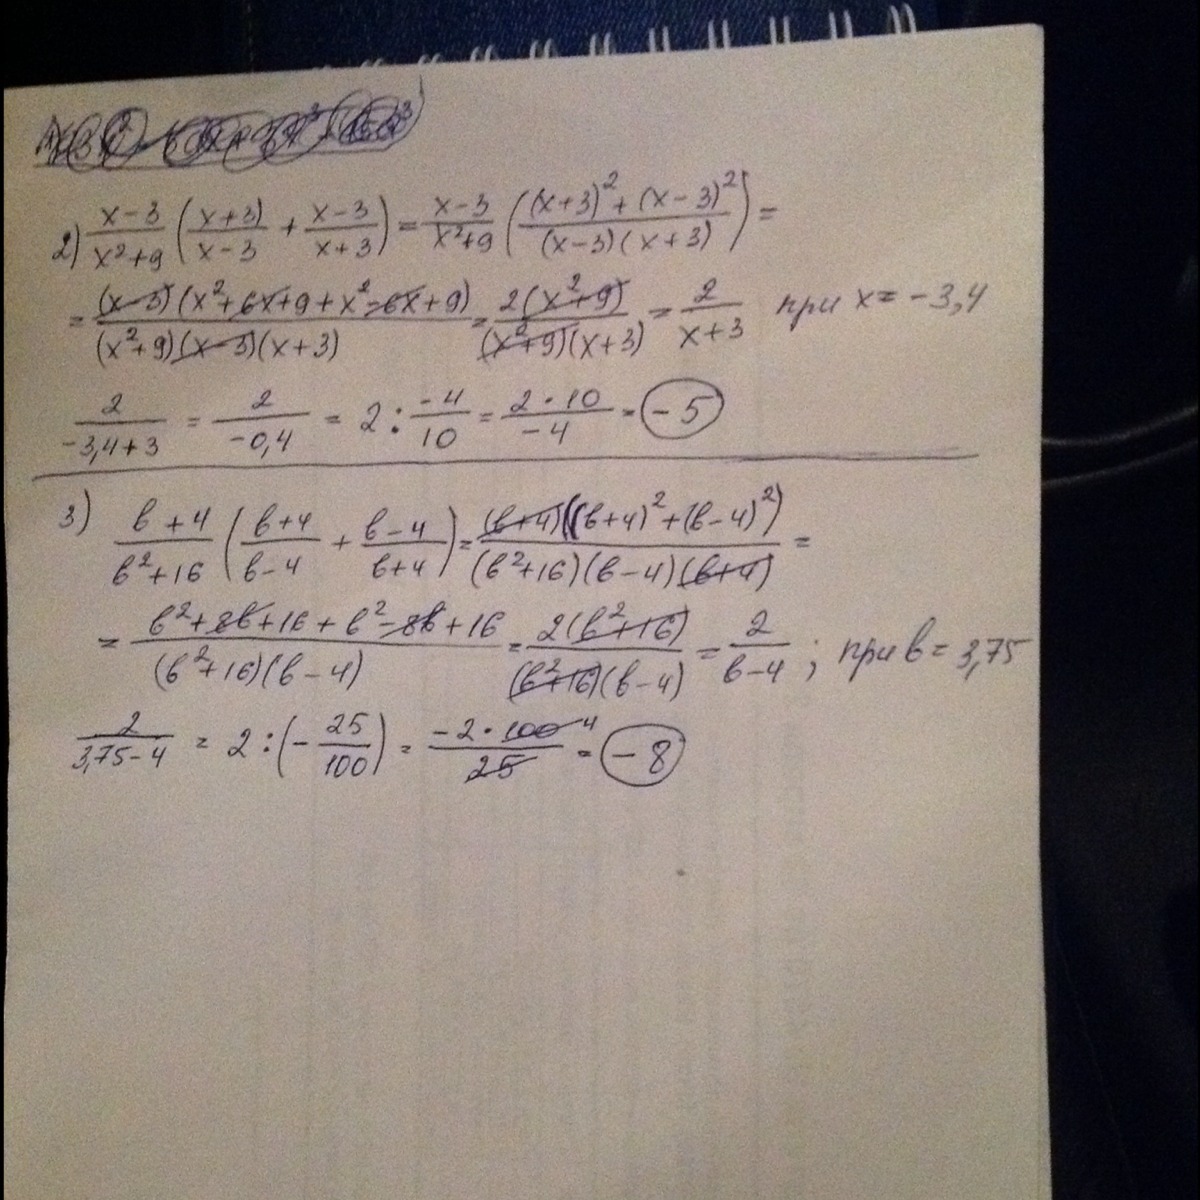 2) x-3/x²+9 (x+3)/x-3 + x-3/x+3) = x-3/x²+9 ((x+3)²+(x-3)²/(x-3)(x+3)) =
= (x-3)(x²+6x+9+x²-6x+9)/(x²+9)(x-3)(x+3) = 2(x²+9)/(x²+9)(x+3) = 2/x+3 при x = -3,4
2/-3,4+3 = 2/-0,4 = 2 : -4/10 = 2·10/-4 = -5
3) в+4/в²+16 (в+4/в-4 + в-4/в+4) = (в+4)((в+4)²+(в-4)²)/(в²+16)(в-4)(в+4) =
= в²+8в+16+в²-8в+16/(в²+16)(в-4) = 2(в²+16)/(в²+16)(в-4) = 2/в-4 ; при в = 3,75
2/3,75-4 = 2 : (-25/100) = -2·100 4/25 = -8